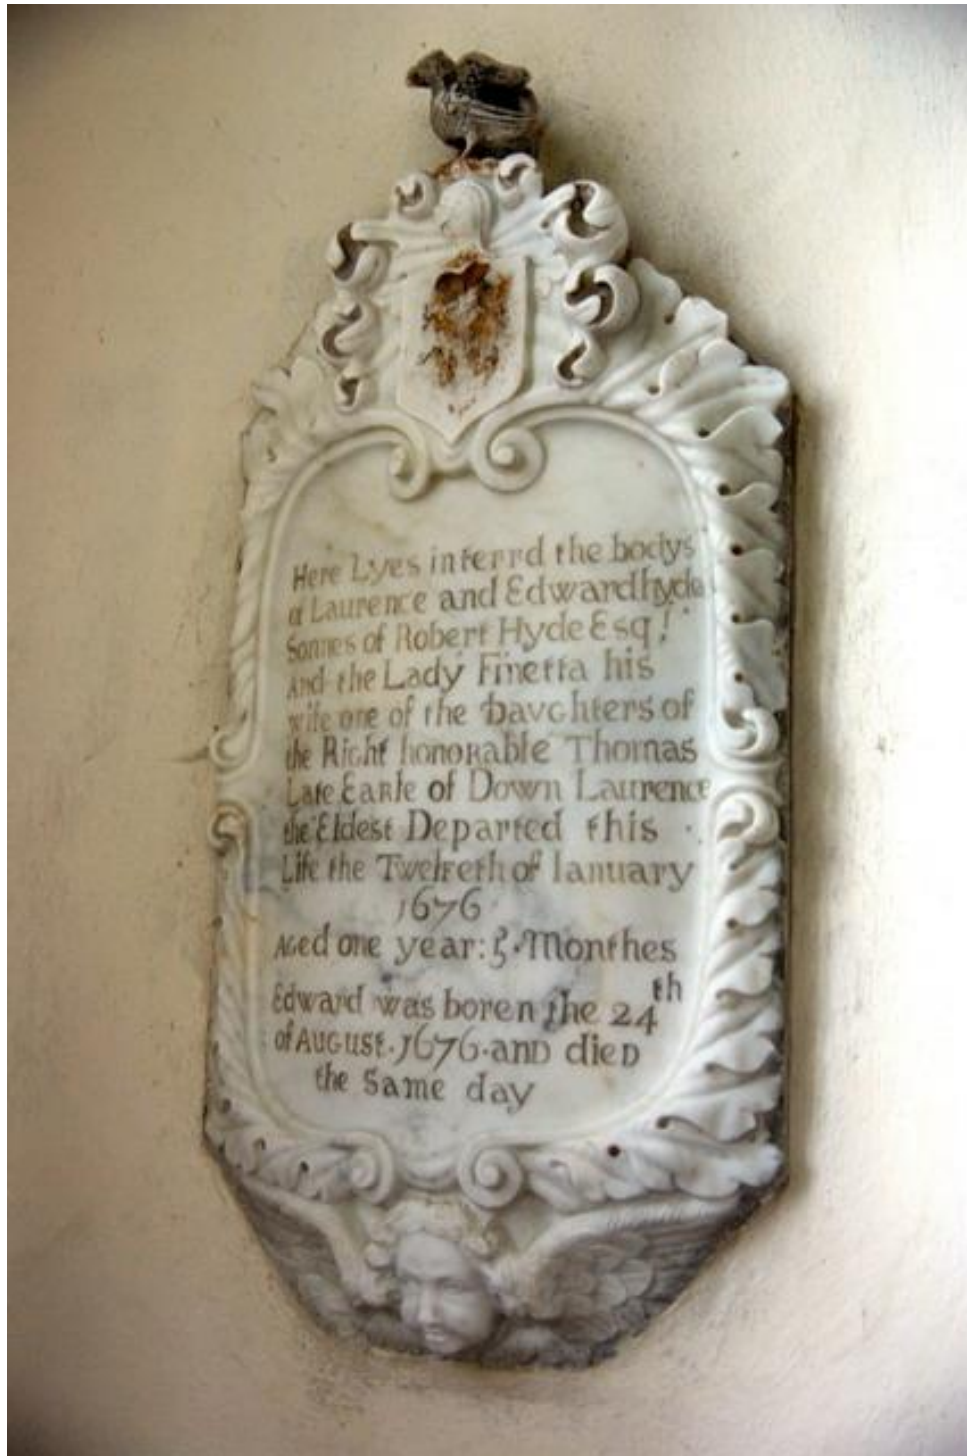 Here Lyes interrd the bodys
of Laurence and Edward hyde
Sonnes of Robert Hyde Esqr
And the Lady Finetta his
wife one of the Davghters of
the Right honorable Thomas
Late Earle of Down Laurence
the Eldest Departed this
Life the Twelfeth of Ianuary
1676
Aged one year: 5 Monthes
Edward was boren the 24th
of August 1676 and died
the same day